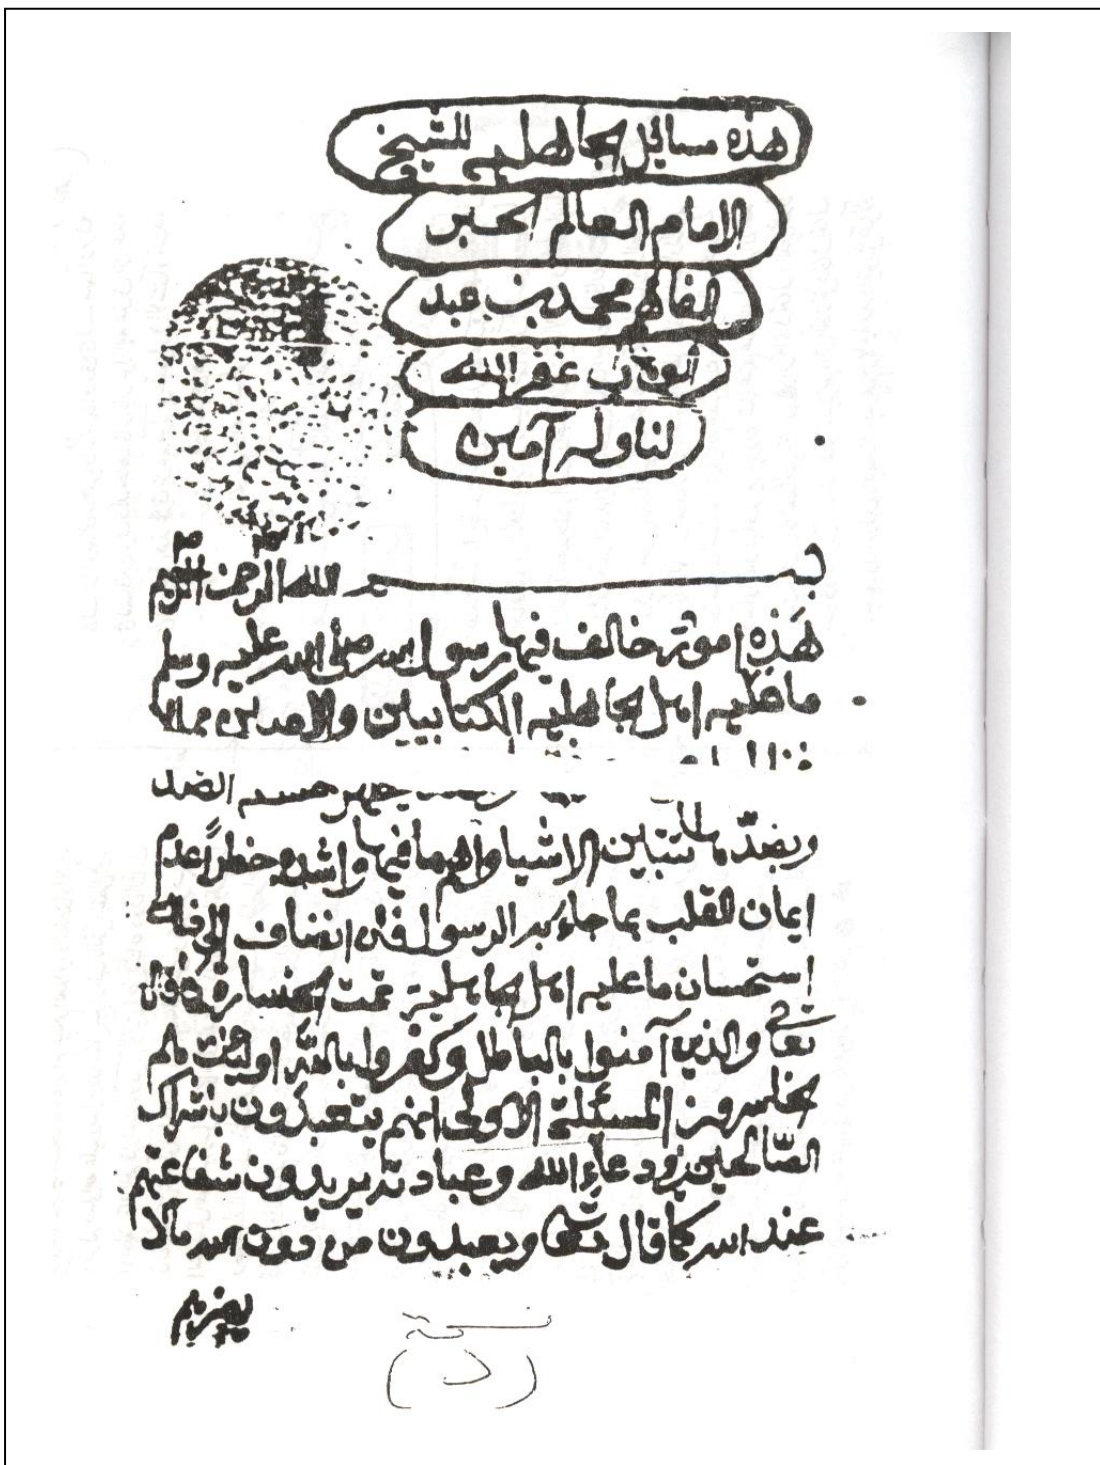 هذه مسايل الجاهليه للشيخ
الامام العالم الحبر
الفاهم محمد بن عبد
الوهاب غفر الله
لنا وله آمين
بسم الله الرحمن الرحيم
هذه امور خالف فيها رسول الله صلى الله عليه وسلم
ما عليه اهل الجاهليه الكتابيين والاميين مما لا
يظهر حسنه الضد
وبضدها تتبين الاشيا واهم ما فيها واشده خطرا عدم
ايمان القلب بما جاء به الرسول فان انضاف الى ذلك
استحسان ما عليه اهل الجاهلية تمت الخسارة كما قال
تعالى والذين آمنوا بالباطل وكفروا بالله اولئك هم
الخاسرون المسئلة الاولى انهم يتعبدون باشراك
الصالحين في دعاء الله وعبادته يريدون شفاعتهم
عند الله كما قال تعالى ويعبدون من دون الله مالا
يضرهم
نسخة
(د)